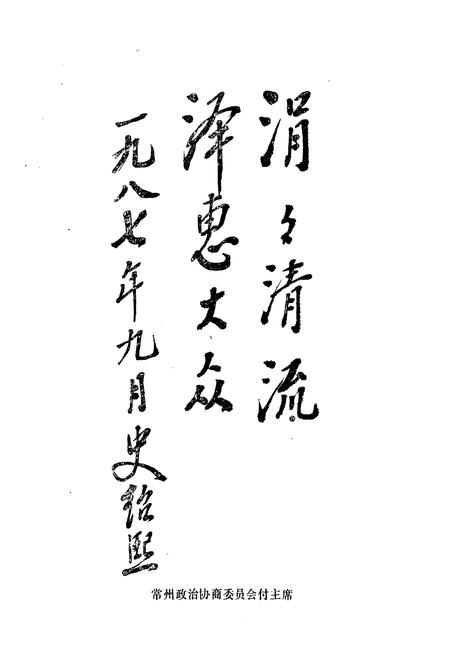 涓々清流
泽惠大众
一九八七年九月史绍熙
常州政治协商委员会付主席